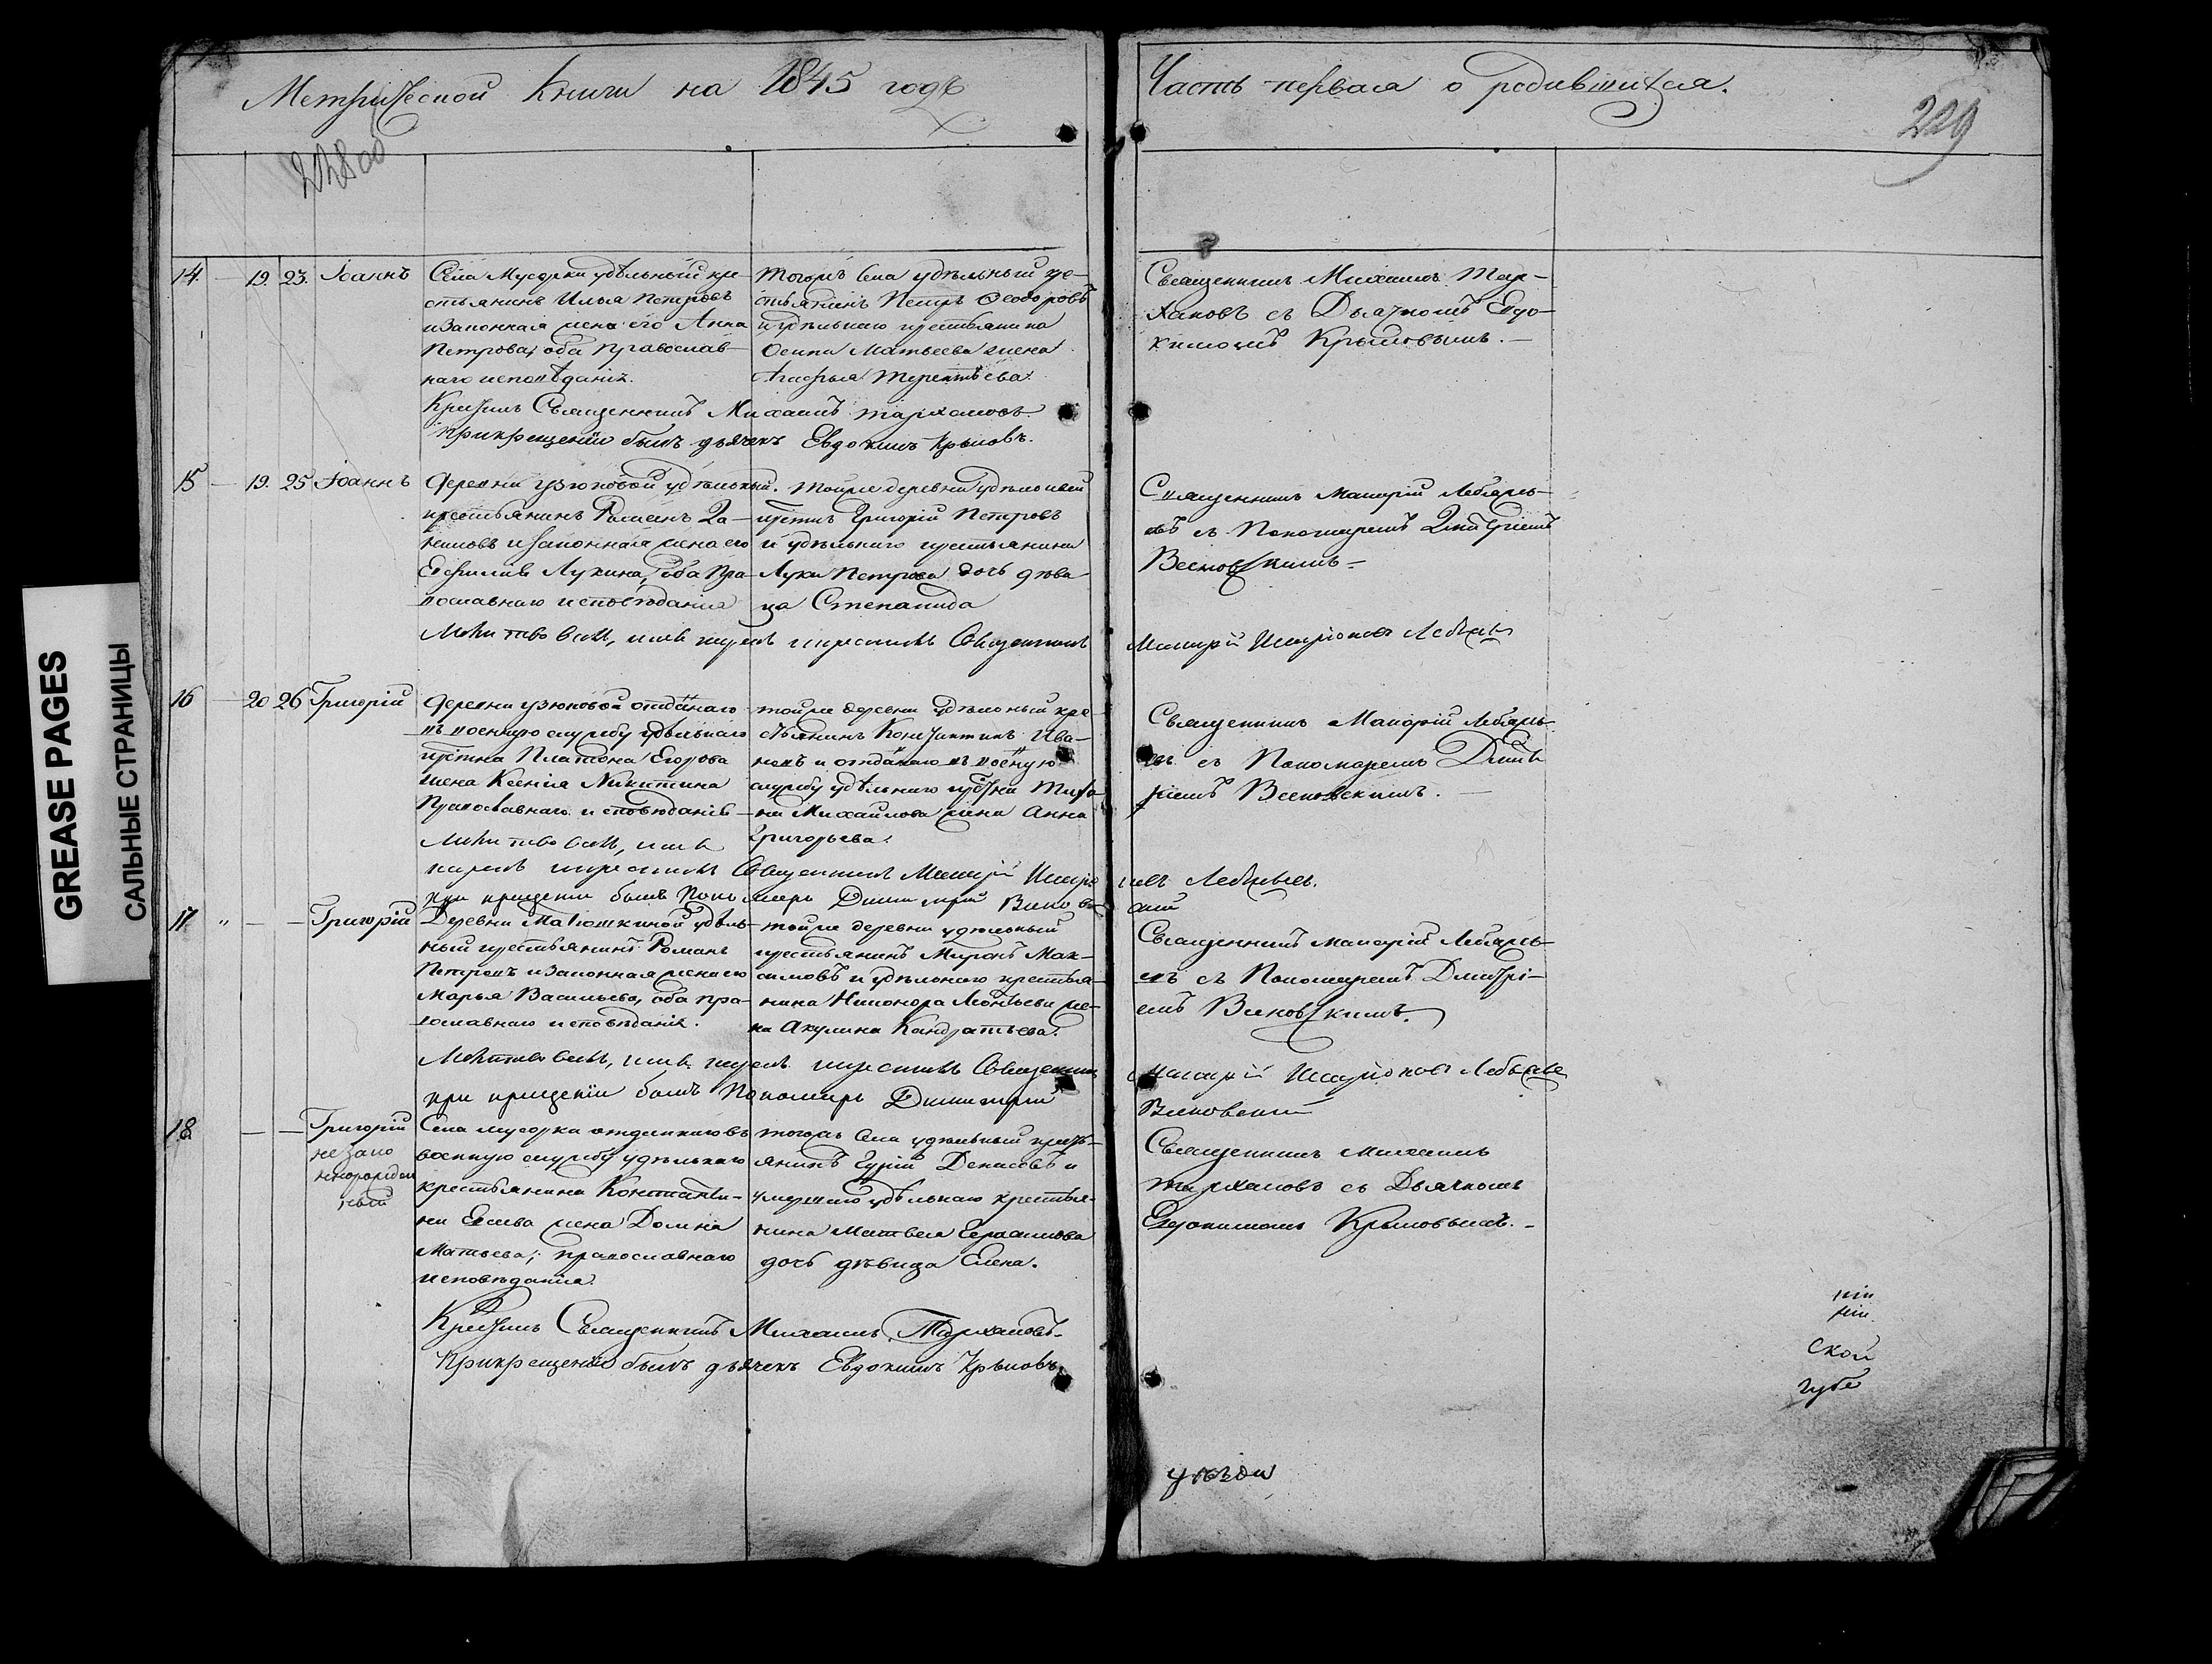 Метрической Книги на 1845 годъ
Часть первая о родившихся.
229
GREASE PAGES
САЛЬНЫЕ СТРАНИЦЫ
14. — 19. 23. Іоаннъ
Села Мусорки удѣльный кре-
стьянинъ Илья Петровъ
и законная жена его Анна
Петрова, оба православ-
наго исповѣданія.
Тогожъ села удѣльный кре-
стьянинъ Петръ Ѳеодоровъ
и удѣльнаго крестьянина
Осипа Матвеева жена
Агафья Терентьева.
Священникъ Михаилъ Тар-
хановъ съ Дьячкомъ Евдо-
кимомъ Крыловымъ. —
Крестилъ Священникъ Михаилъ Тархановъ.
При крещеніи былъ дьячекъ Евдокимъ Крыловъ.
15 — 19. 25 Іоаннъ
Деревни Узюковой удѣльный
крестьянинъ Романъ
и законная жена его
Лукина, оба пра-
вославнаго исповѣданія
Тойже деревни удѣльный
Григорій Петровъ
и удѣльнаго крестьянина
Луки Петрова дочь дѣви-
ца Степанида
Священникъ
съ Пономаремъ Дмитріемъ
Молитвовалъ, имя нарекъ и крестилъ Священникъ
16 — 20 26 Григорій
Деревни Узюковой отданаго
въ военную службу удѣльнаго
Платона Егорова
жена Ксенія Никитина
Православнаго исповѣданія
тойже деревни удѣльный кре-
стьянинъ Константинъ Ива-
новъ и отданаго въ военую
службу удѣльнаго
Михайлова жена Анна
Григорьева.
Священникъ
съ Пономаремъ Дмит
ріемъ
Молитвовалъ, имя
нарекъ и крестилъ Священникъ
при крещеніи былъ Пономарь Димитрій
17 " — — Григорій
Деревни Матюшкиной удѣль-
ный крестьянинъ Романъ
Петровъ и законная жена его
Марья Васильева, оба пра-
вославнаго исповѣданія.
тойже деревни удѣльный
крестьянинъ Миронъ Мак-
симовъ и удѣльнаго крестья-
нина Никонора Леонтьева же-
на Акулина Кандратьева.
Священникъ
съ Пономаремъ Дмитрі-
емъ
Молитвовалъ, имя нарекъ и крестилъ Священникъ
при крещеніи былъ Пономарь Димитрій
18. — — Григорій
незако
ннорожден
ный
Села Мусорка отданнаго въ
военную службу удѣльнаго
крестьянина Константи-
на жена Домна
Матвева, православнаго
исповѣданія.
тогожъ села удѣльный кресть-
янинъ Гурій Денисовъ и
умершаго удѣльнаго крестья-
нина Матвея Герасимова
дочь дѣвица Елена.
Священникъ Михаилъ
Тархановъ съ Дьячкомъ
Евдокимомъ Крыловымъ. —
Крестилъ Священникъ Михаилъ Тархановъ.
При крещеніи былъ дьячекъ Евдокимъ Крыловъ.
ской
губе
уѣзда